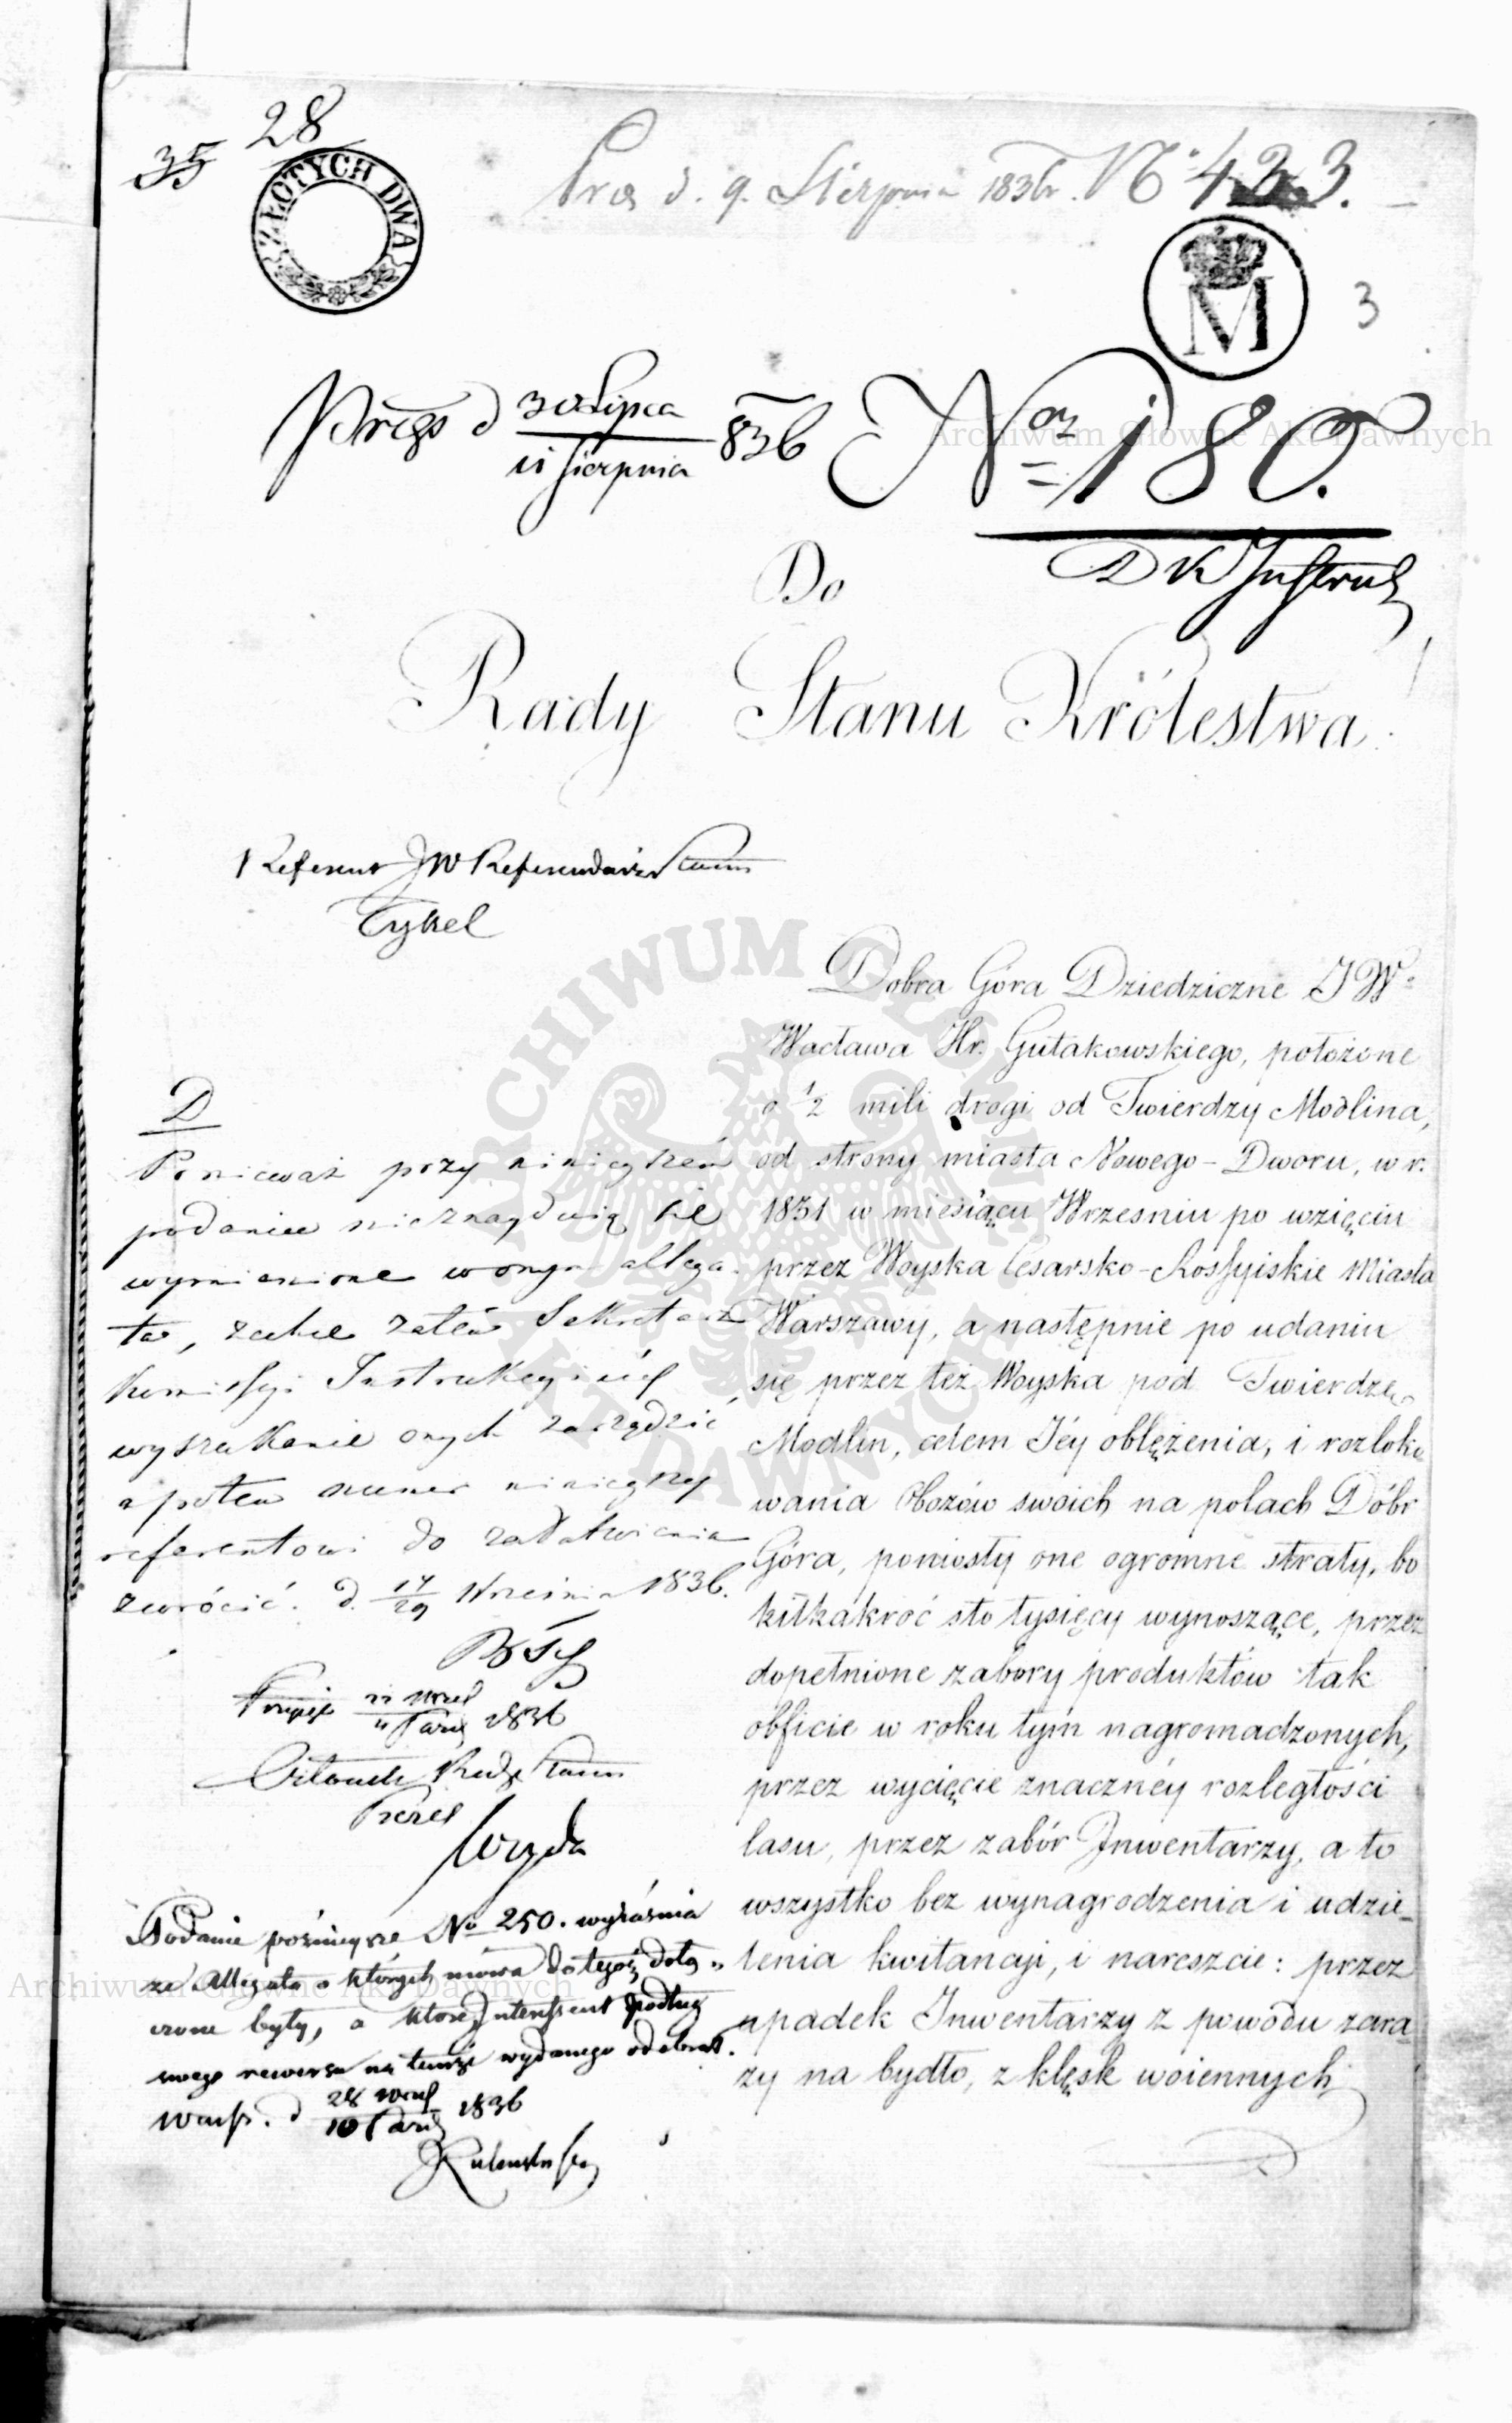 28
35
ZŁOTYCH DWA
Prez d. 9. Sierpnia 1836 r. No 423.
M
3
Prez d 30 Lipca / 11 Sierpnia 836 Nr 180.
D K Instruk
Do
Rady Stanu Królestwa
Referent JW Referendarz Stanu
Tykel
Dobra Góra Dziedziczne JWo
Wacława Hr. Gutakowskiego, położone
o 1/2 mili drogi od Twierdzy Modlina,
od strony miasta Nowego-Dworu, w r.
1831 w miesiącu Wrzesniu po wzięciu
przez Woyska Cesarsko-Rossyiskie Miasta
Warszawy, a następnie po udaniu
się przez też Woyska pod Twierdzę
Modlin, celem Jéy oblężenia, i rozloko
wania Obozów swoich na polach Dóbr
Góra, poniosły one ogromne straty, bo
kilkakroć sto tysięcy wynoszące, przez
dopełnione zabory produktów tak
obficie w roku tym nagromadzonych,
przez wycięcie znacznéy rozległości
lasu, przez zabór Inwentarzy, a to
wszystko bez wynagrodzenia i udzie-
lenia kwitancji, i nareszcie: przez
upadek Inwentarzy z powodu zara
zy na bydło, z klęsk woiennych
D
Ponieważ przy ninieyszem
podaniu nieznayduią się
wymienione w onym allega
ta, zechce zatém Sekretarz
Kommissyi Instrukcyinéj
wyszukanie onych zarządzić
a potem numer ninieyszy
referentowi do załatwienia
zwrócić. d. 17/29 Września 1836.
1836
Stanu
Podanie poźnieysze No 250. wyiaśnia
że Allegata o których mowa do tegoż dołą-
czone były, a które Interessent podług
swego rewersu na temże wydanego odebrał.
Warsz. d 28 Wrześ / 10 Paźd 1836
Archiwum Główne Akt Dawnych
ARCHIWUM GŁÓWNE AKT DAWNYCH
Archiwum Główne Akt Dawnych